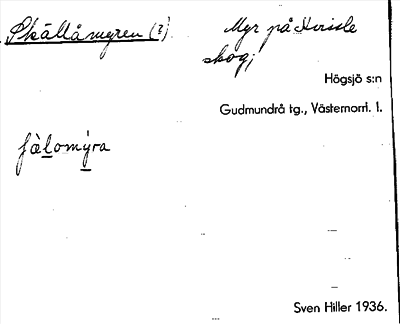 Skällåmyren (?)
Myr på
skog;
Högsjö s:n
Gudmundrå tg., Västernorrl. l.
fä̀lomýra
Sven Hiller 1936.